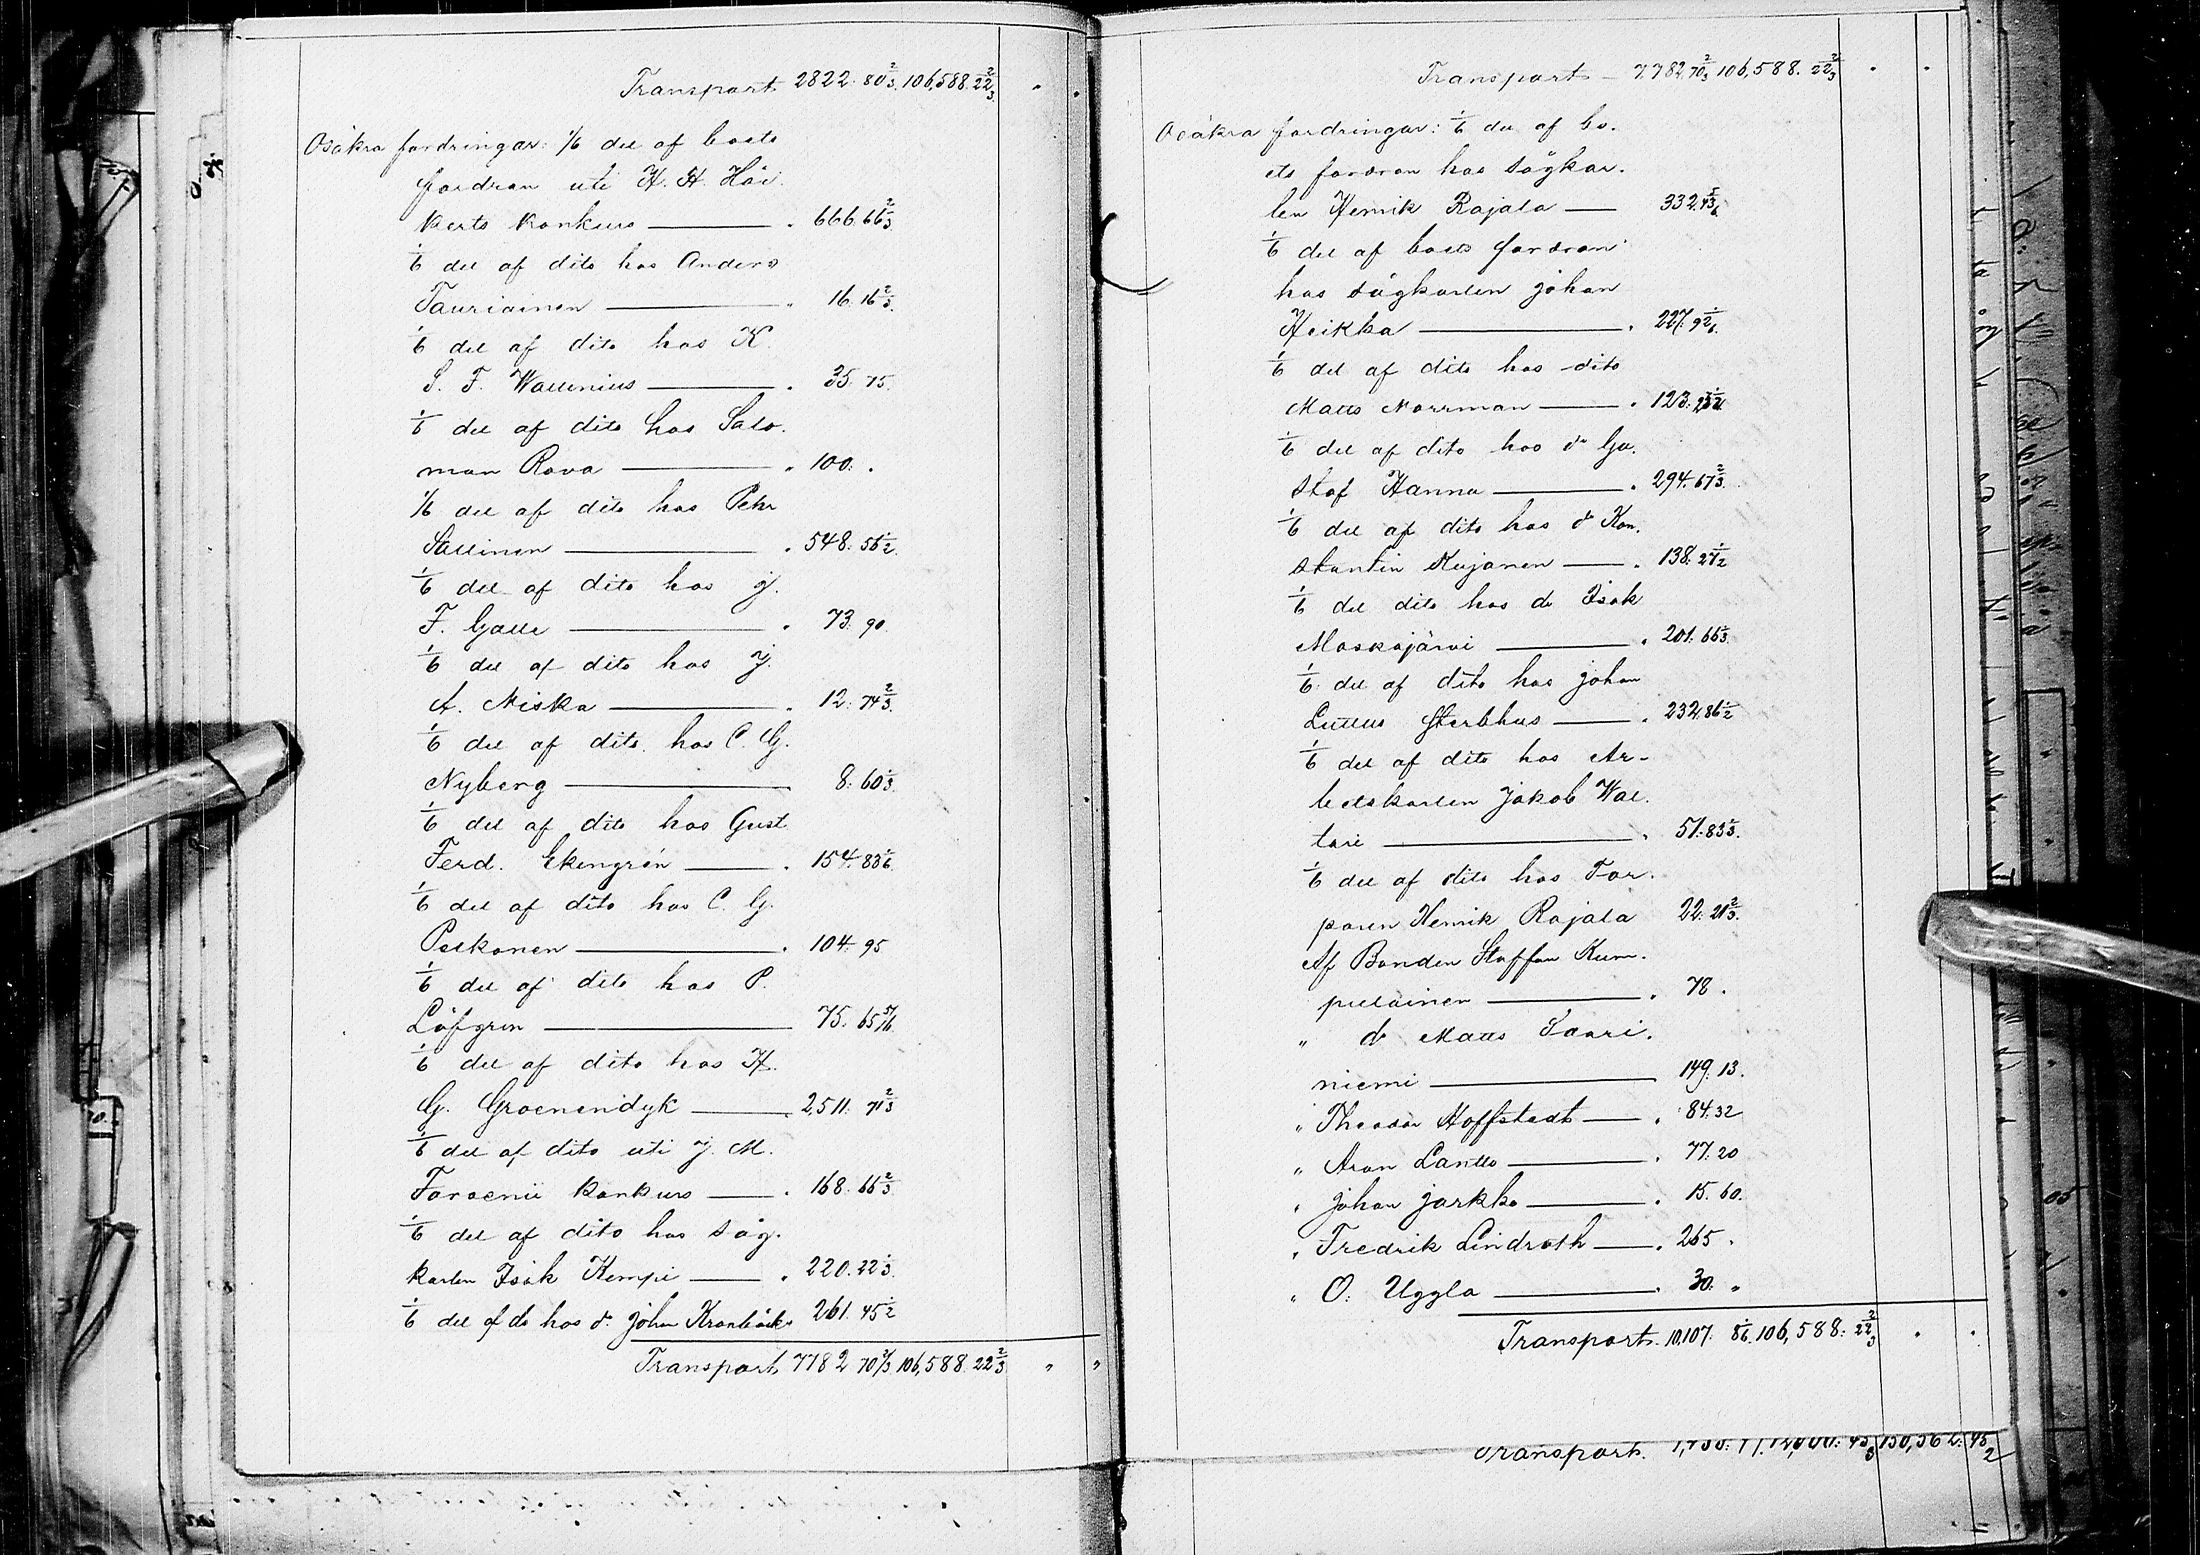 Transport 2822. 80 2/3. 106,588. 22 2/3.
Osäkra fordringar: 1/6 del af boets
fordran uti H. H. Häi-
kerts konkurs — " 666. 66 2/3
1/6 del af dito hos Anders
Tauriainen — " 16. 16 2/3.
1/6 del af dito hos K.
S. F. Wallenius — " 35. 75.
1/6 del af dito hos Salo-
mon Rova — " 100. "
1/6 del af dito hos Pehr
Sallinen — " 548. 56 1/2.
1/6 del af dito hos J.
F. Galle — " 73. 90.
1/6 del af dito hos J.
A. Niska — " 12. 74 2/3.
1/6 del af dito hos C. G.
Nyberg — 8. 60 1/3.
1/6 del af dito hos Gust.
Ferd. Ekengrén — " 154. 83 1/6.
1/6 del af dito hos C. G.
Peskonen — " 104. 95
1/6 del af dito hos P.
Löfgren — 75. 65
1/6 del af dito hos H.
G. Groenendyk — 2511. 71 2/3
1/6 del af dito uti J. M.
Toroenii konkurs — " 168. 66 2/3.
1/6 del af dito hos såg-
karlen Isak Kempi — " 220. 22 1/3.
1/6 del af do hos do Johan Krankäck " 261. 45 1/2
Transport 7782 70 2/3. 106,588. 22 2/3 " "
Transport — 7782. 70 2/3 106,588. 22 2/3 " "
Osäkra fordringar: 1/6 del af bo-
ets fordran hos sågkar-
len Henrik Rajala — 332. 43 5/6
1/6 del af boets fordran
hos sågkarlen Johan
Heikka — " 227. 92 1/6.
1/6 del af dito hos dito
Matts Norrman — " 123.
1/6 del af dito hos do Gu-
staf Hannu — " 294. 67 2/3.
1/6 del af dito hos do Kon-
stantin Kujanen — " 138. 27 1/2
1/6 del dito hos do Isak
Moskojärvi — " 201. 66 1/3.
1/6 del af dito hos Johan
Luttus Sterbhus — " 232. 86 1/2
1/6 del af dito hos Ar-
betskarlen Jakob Wal-
tari — " 51. 83 1/3.
1/6 del af dito hos Tor-
paren Henrik Rajala 22. 21 2/3.
Af Bonden Staffan Kum-
pulainen — " 78 "
" do Matts Saari-
niemi — 149. 13.
" Theodor Hoffstedt — " 84. 32
" Aron Lantto — " 77. 20
" Johan Jarkko — " 15. 60.
" Fredrik Lindroth — " 265 "
" O. Uggla — " 30. "
Transport. 10,107. 8 1/6. 106,588. 22 2/3 " "
Transport.